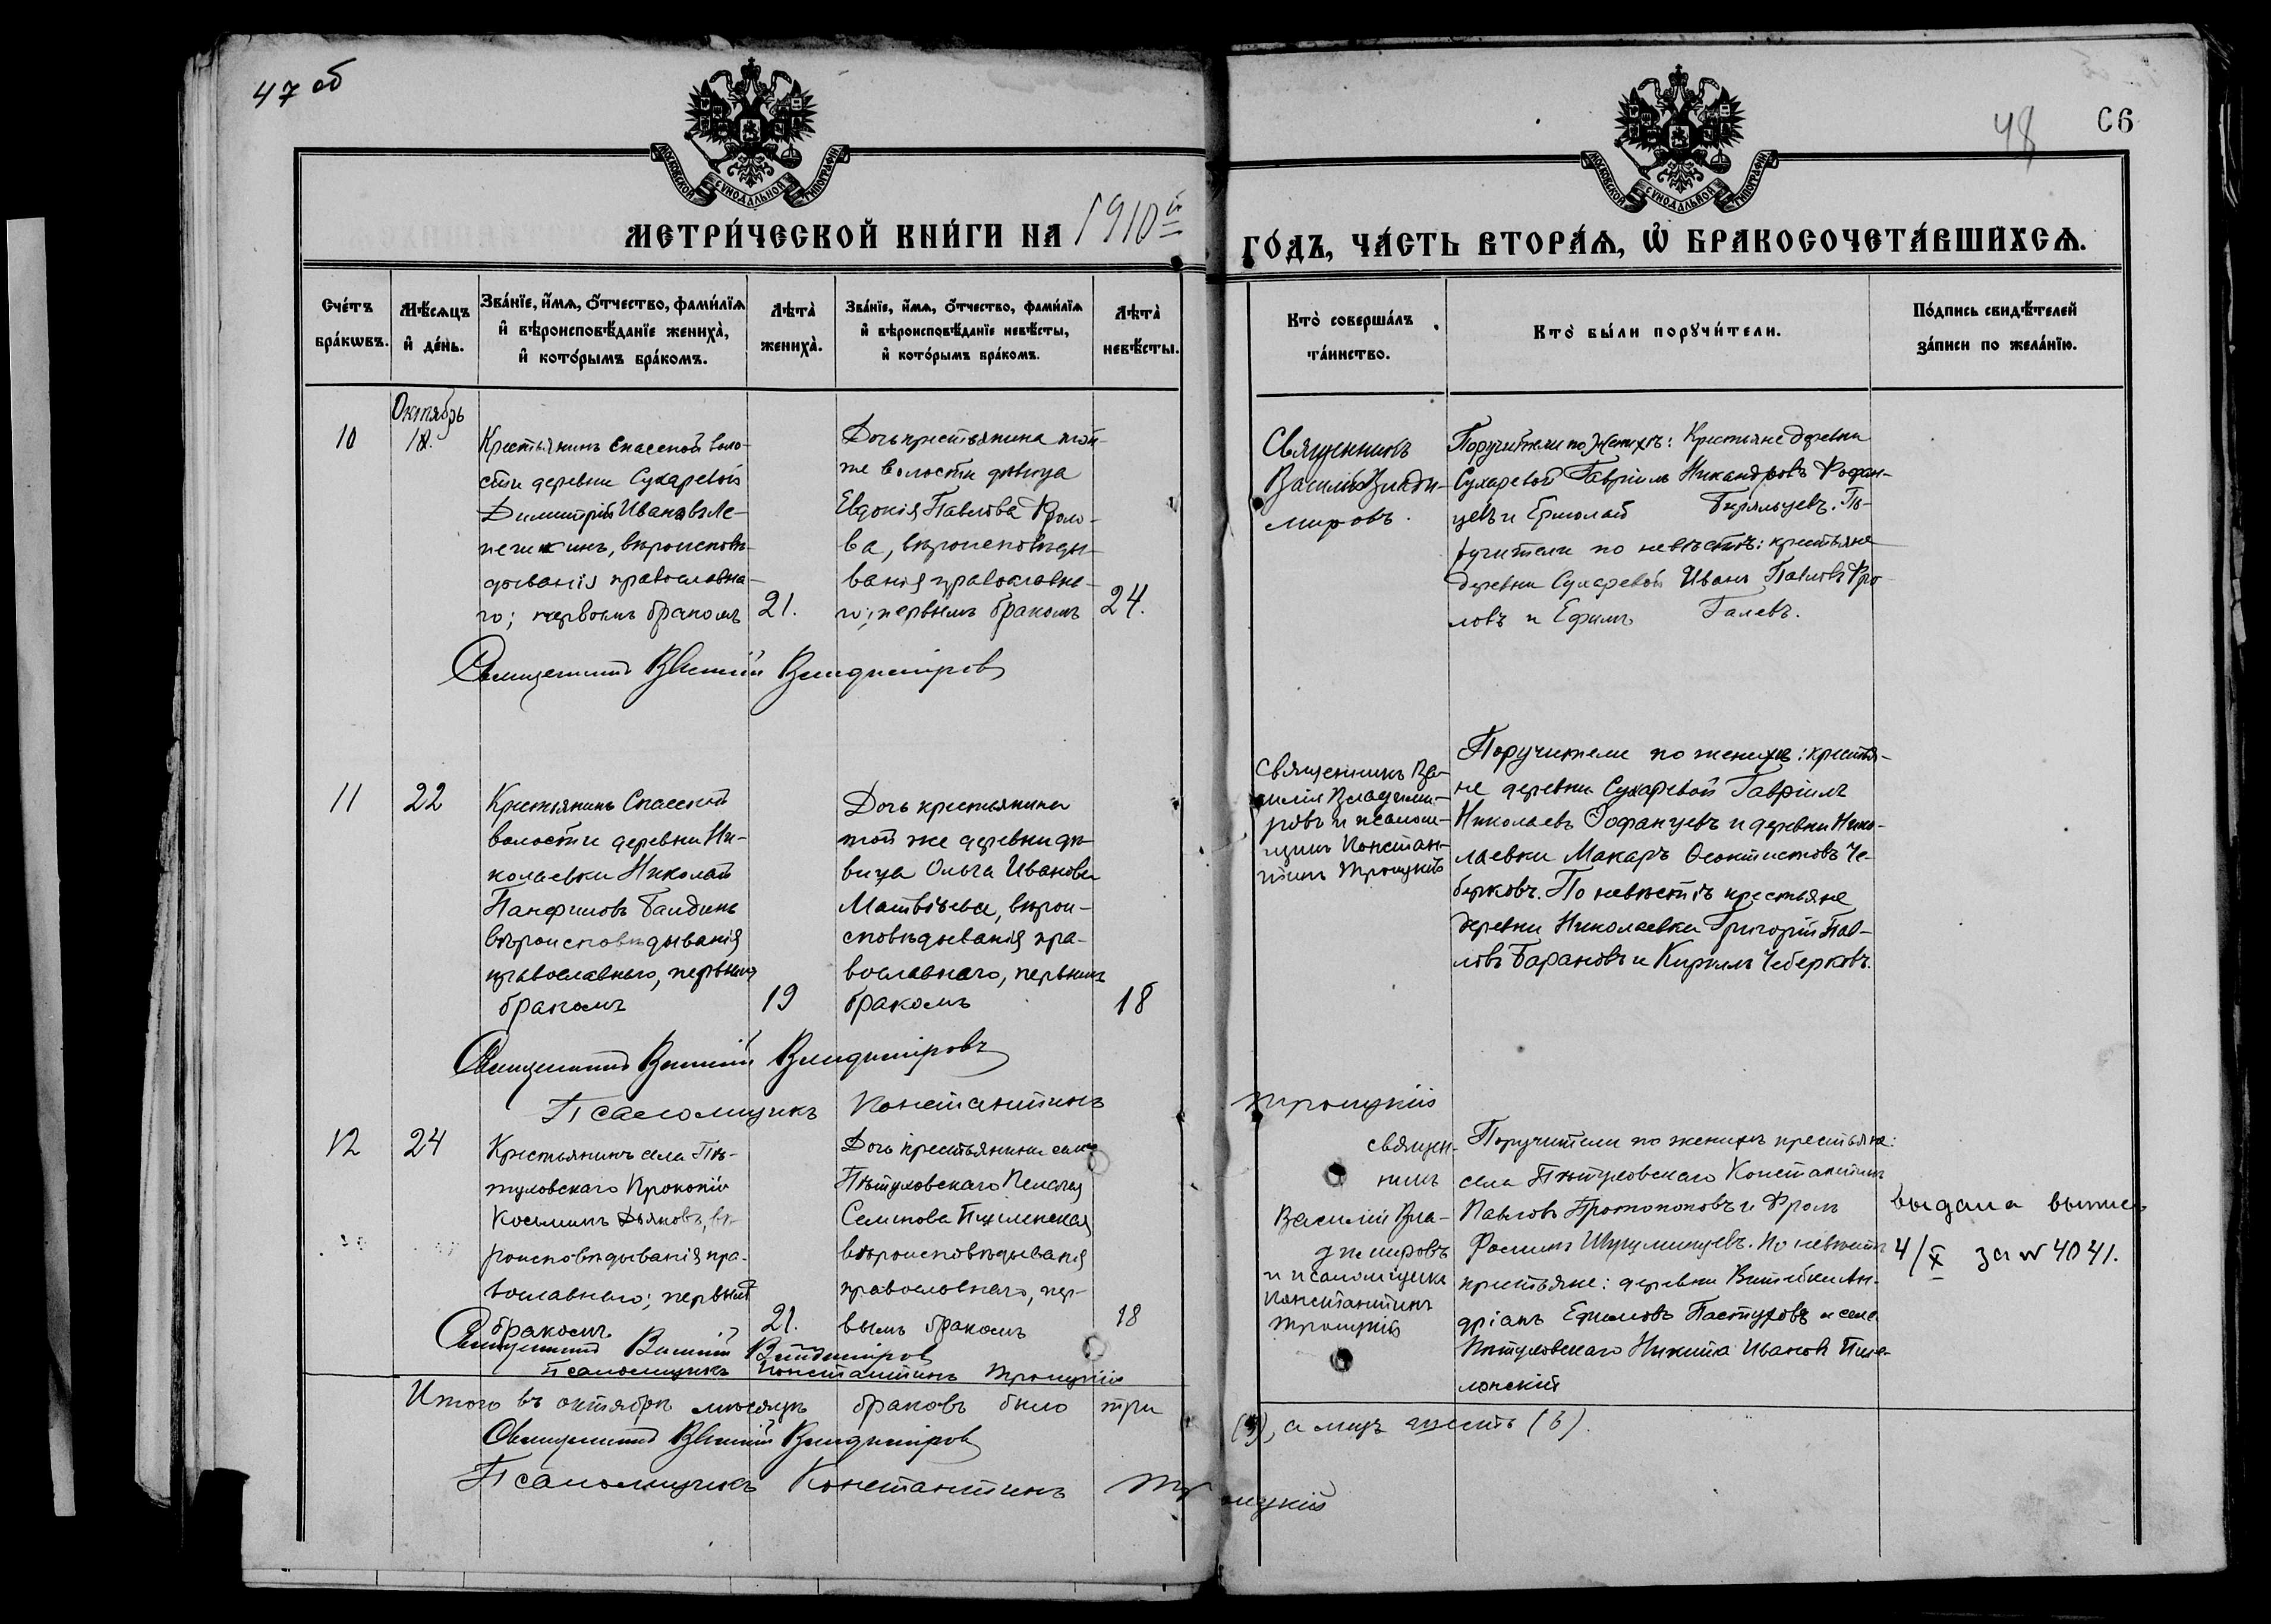 47 об
48
66
МОСКОВСКОЙ СУНОДАЛЬНОЙ ТИПОГРАФІИ
МОСКОВСКОЙ СУНОДАЛЬНОЙ ТИПОГРАФІИ
МЕТРИ́ЧЕСКОЙ КНИ́ГИ НА 1910й
ГО́ДЪ, ЧА́СТЬ ВТОРА́Ѧ, Ѽ БРАКОСОЧЕТА́ВШИХСѦ.
Сче́тъ бра́кѡвъ.
Мѣ́сѧцъ и҆ де́нь.
Зва́нїе, и҆́мѧ, ѻ҆́тчество, фами́лїѧ
и҆ вѣроисповѣ́данїе жениха̀,
и҆ кото́рымъ бра́комъ.
Лѣта̀ жениха̀.
Зва́нїе, и҆́мѧ, ѻ҆́тчество, фами́лїѧ
и҆ вѣроисповѣ́данїе невѣ́сты,
и҆ кото́рымъ бра́комъ.
Лѣта̀ невѣ́сты.
Кто̀ соверша́лъ
та́инство.
Кто̀ бы́ли порꙋчи́тели.
По́дпись свидѣ́телей
за́писи по жела́нїю.
Октябрь
10
18.
Крестьянинъ Спасской воло-
сти деревни Сухаревой
Димитрій Ивановъ Ле-
печихинъ, вѣроисповѣ-
дыванія православна-
го; первымъ бракомъ
21.
Дочь крестьянина той
же волости дѣвица
Евдокія Павлова Фроло-
ва, вѣроисповѣды-
ванія православна-
го; первымъ бракомъ
24.
Священникъ
Василій Влади-
мировъ.
Поручители по женихѣ: Крестьяне деревни
Сухаревой Гавріилъ Никандровъ
и Ермолай По-
ручители по невѣстѣ: крестьяне
деревни Сухаревой Иванъ Павловъ Фро-
ловъ и Ефимъ Галевъ.
Священникъ Василій Владиміров
11
22
Крестьянинъ Спасской
волости деревни Ни-
колаевки Николай
Панфиловъ Балдинъ
вѣроисповѣдыванія
православнаго, первымъ
бракомъ
19
Дочь крестьянина
той же деревни дѣ-
вица Ольга Иванова
Матвѣева, вѣрои-
сповѣдыванія пра-
вославнаго, первымъ
бракомъ
18
Священникъ Ва-
силій Владими-
ровъ и псалом-
щикъ Констан-
тинъ Троицкій
Поручители по женихѣ: крестья-
не деревни Сухаревой Гавріилъ
Николаевъ и деревни Нико-
лаевки Макаръ Ѳеоктистовъ Че-
берковъ. По невѣстѣ крестьяне
деревни Николаевки Григорій Пав-
ловъ Барановъ и Кирилъ Чеберковъ.
Священникъ Василій Владиміровъ
Псаломщикъ Константинъ Троицкій
12
24
Крестьянинъ села Пѣ-
туховскаго Прокопій
Косьминъ Дьяковъ, вѣ-
роисповѣдыванія пра-
вославнаго; первымъ
бракомъ
21.
Дочь крестьянина села
Пѣтуховскаго Пелагея
Семенова
вѣроисповѣдыванія
православнаго, пер-
вымъ бракомъ
18
Священ-
никъ
Василій Вла-
димировъ
и псаломщикъ
Константинъ
Троицкій
Поручители по женихѣ крестьяне:
села Пѣтуховскаго Константинъ
Павловъ Протопоповъ и Фролъ
Фоминъ По невѣстѣ
крестьяне: деревни Витебки Ан-
дріанъ Ефимовъ Пастуховъ и села
Пѣтуховскаго Никита Ивановъ
выдана выпись
4/X за № 4041.
Священникъ Василій Владиміров
Псаломщикъ Константинъ Троицкій
Итого въ октябрѣ мѣсяцѣ браковъ было три (3), а лицъ шесть (6).
Священникъ Василій Владиміров
Псаломщикъ Константинъ Троицкій